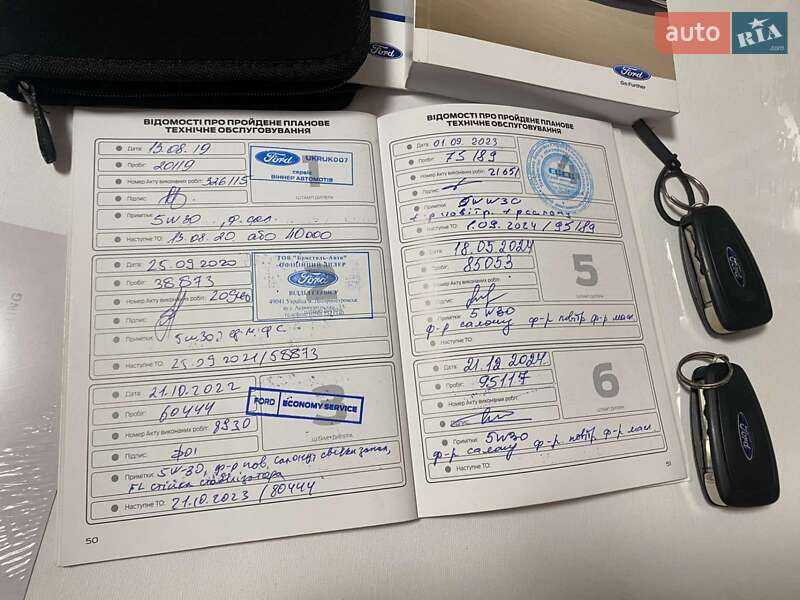 auto RIA.com
Ford
Ford
Go Further
ВІДОМОСТІ ПРО ПРОЙДЕНЕ ПЛАНОВЕ
ТЕХНІЧНЕ ОБСЛУГОВУВАННЯ
Дата: 13.08.19
Пробіг: 20119
Номер Акту виконаних робіт: 326115
Підпис:
Ford UKRUK007
сервіс
ВІННЕР АВТОМОТІВ
1
ШТАМП ДИЛЕРА
Примітки: 5W30, ф.сал.
Наступне ТО: 13.08.20 або 40000
Дата: 25.09.2020
Пробіг: 38873
Номер Акту виконаних робіт:
Підпис:
ТОВ "Бристоль-Авто"
ОФІЦІЙНИЙ ДИЛЕР
Ford
ВІДДІЛ СЕРВІСУ
49041 Україна м. Дніпропетровськ
Примітки: 5W30
Наступне ТО: 25.09.2021/58873
Дата: 21.10.2022
Пробіг: 60444
Номер Акту виконаних робіт: 8930
Підпис: ФО1
FORD ECONOMY SERVICE
3
ШТАМП ДИЛЕРА
Примітки: 5W-30, ф-р пов, салону, свечки запал,
FL стійка стабілізатора
Наступне ТО: 21.10.2023 / 80444
50
ВІДОМОСТІ ПРО ПРОЙДЕНЕ ПЛАНОВЕ
ТЕХНІЧНЕ ОБСЛУГОВУВАННЯ
Дата: 01.09.2023
Пробіг: 75189
Номер Акту виконаних робіт: 21651
Підпис:
4
Примітки: 5W30
ф-р повітр. ф-р салону
Наступне ТО: 1.09.2024/95189
Дата: 18.05.2024
Пробіг: 85053
Номер Акту виконаних робіт:
Підпис:
5
ШТАМП ДИЛЕРА
Примітки: 5W30
ф-р салону ф-р повітр. ф-р масл.
Наступне ТО:
Дата: 21.12.2024
Пробіг: 95117
Номер Акту виконаних робіт:
Підпис:
6
ШТАМП ДИЛЕРА
Примітки: 5W30
ф-р салону ф-р повітр. ф-р масл.
Наступне ТО:
51
Ford
Ford